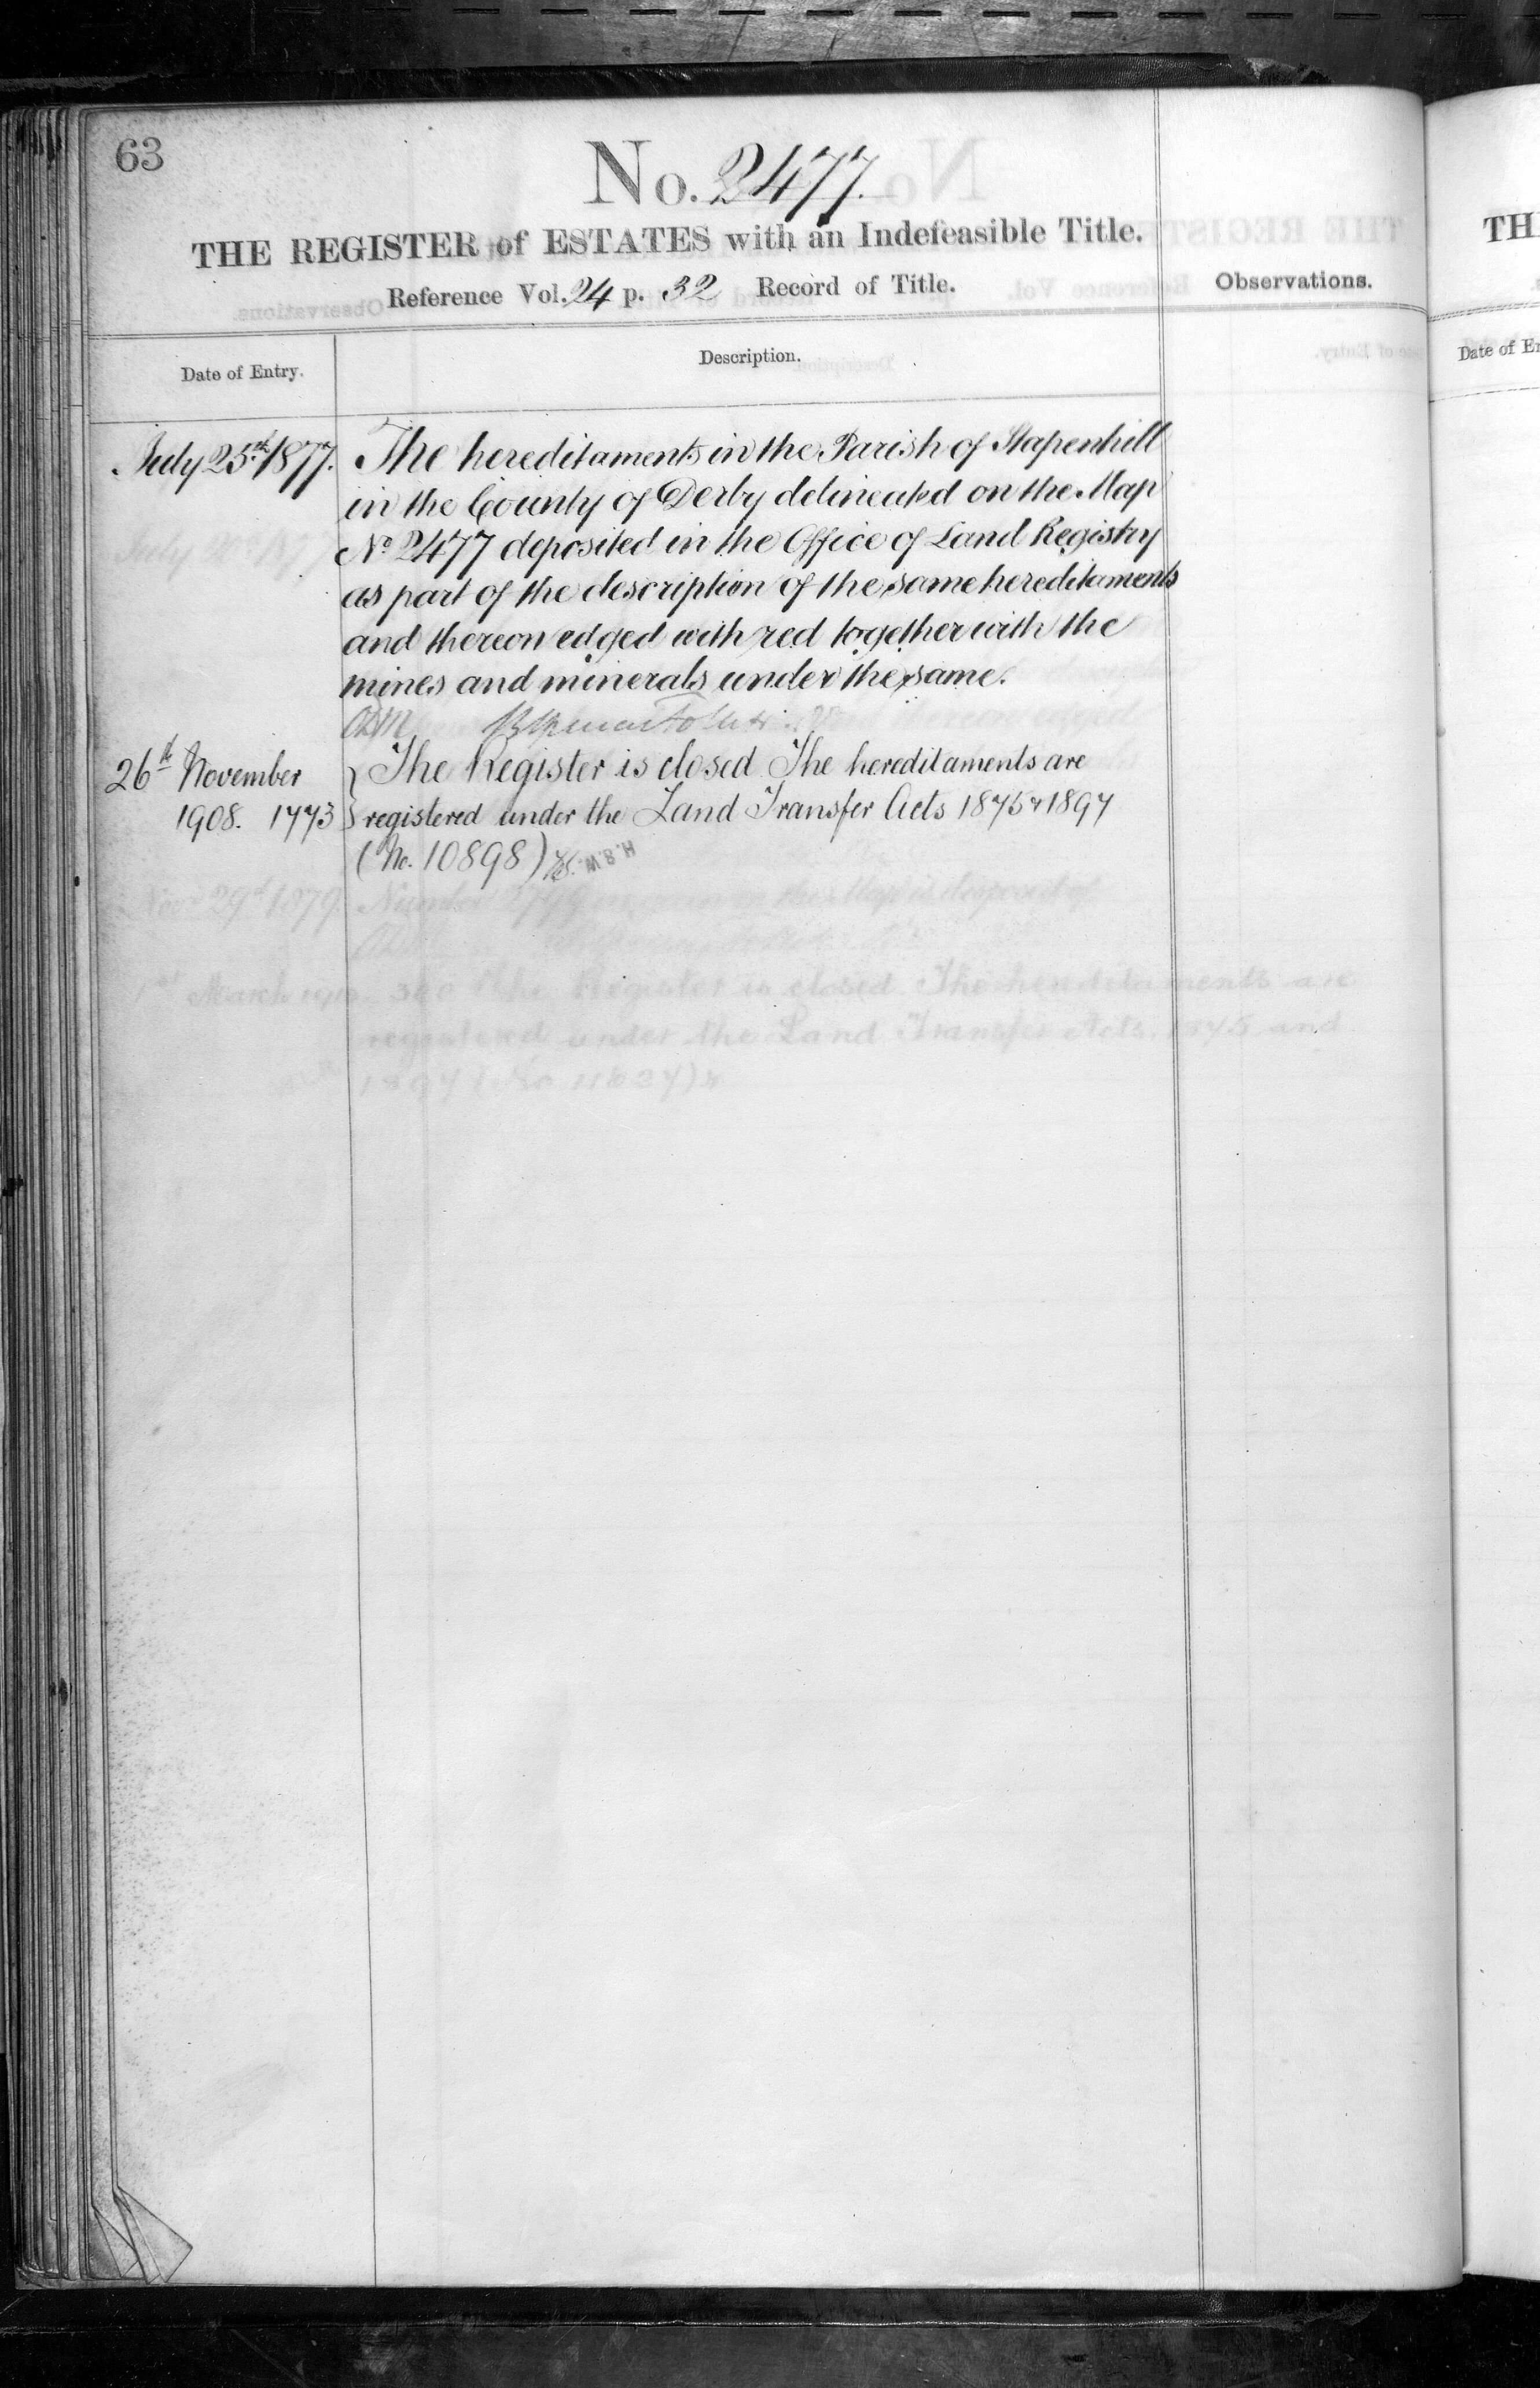 63
No. 2477.
THE REGISTER of ESTATES with an Indefeasible Title.
Reference Vol. 24 p. 32 Record of Title.
Observations.
Date of Entry.
Description.
July 25th 1877.
The hereditaments in the Parish of Stapenhill
in the County of Derby delineated on the Map
No 2477 deposited in the Office of Land Registry
as part of the description of the same hereditaments
and thereon edged with red together with the
mines and minerals under the same.
26th November
1908. 1773
The Register is closed. The hereditaments are
registered under the Land Transfer Acts 1875 & 1897
(No. 10898)
H.B.W.
TH
Date of En